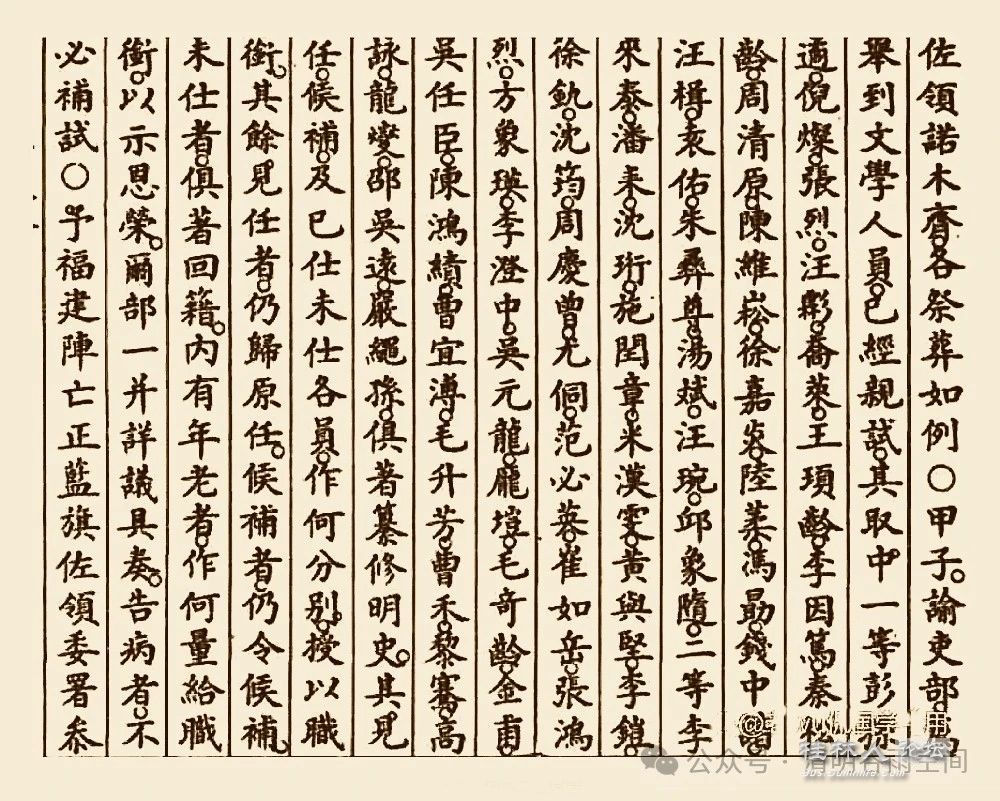 佐領諾木齊。各祭葬如例○甲子。諭吏部。
舉到文學人員。已經親試。其取中一等彭孫
遹。倪燦。張烈。汪霦。喬萊。王頊齡。李因篤。秦松
齡。周清原。陳維崧。徐嘉炎。陸葇。馮勗。錢中諧。
汪楫。袁佑。朱彝尊。湯斌。汪琬。邱象隨。二等李
來泰。潘耒。沈珩。施閏章。米漢雯。黃與堅。李鎧。
徐釚。沈筠。周慶曾。尤侗。范必英。崔如岳。張鴻
烈。方象瑛。李澄中。吳元龍。龐塏。毛奇齡。金甫。
吳任臣。陳鴻績。曹宜溥。毛升芳。曹禾。黎騫。高
詠。龍燮。邵吳遠。嚴繩孫。俱著纂修明史。其見
任。候補。及已仕未仕各員。作何分別。授以職
銜。其餘見任者。仍歸原任。候補者。仍令候補。
未仕者。俱著回籍。內有年老者。作何量給職
銜。以示恩榮。爾部一并詳議具奏。告病者。不
必補試○予福建陣亡正藍旗佐領委署參
桂林人论坛
公众号 · 清明谷雨空间